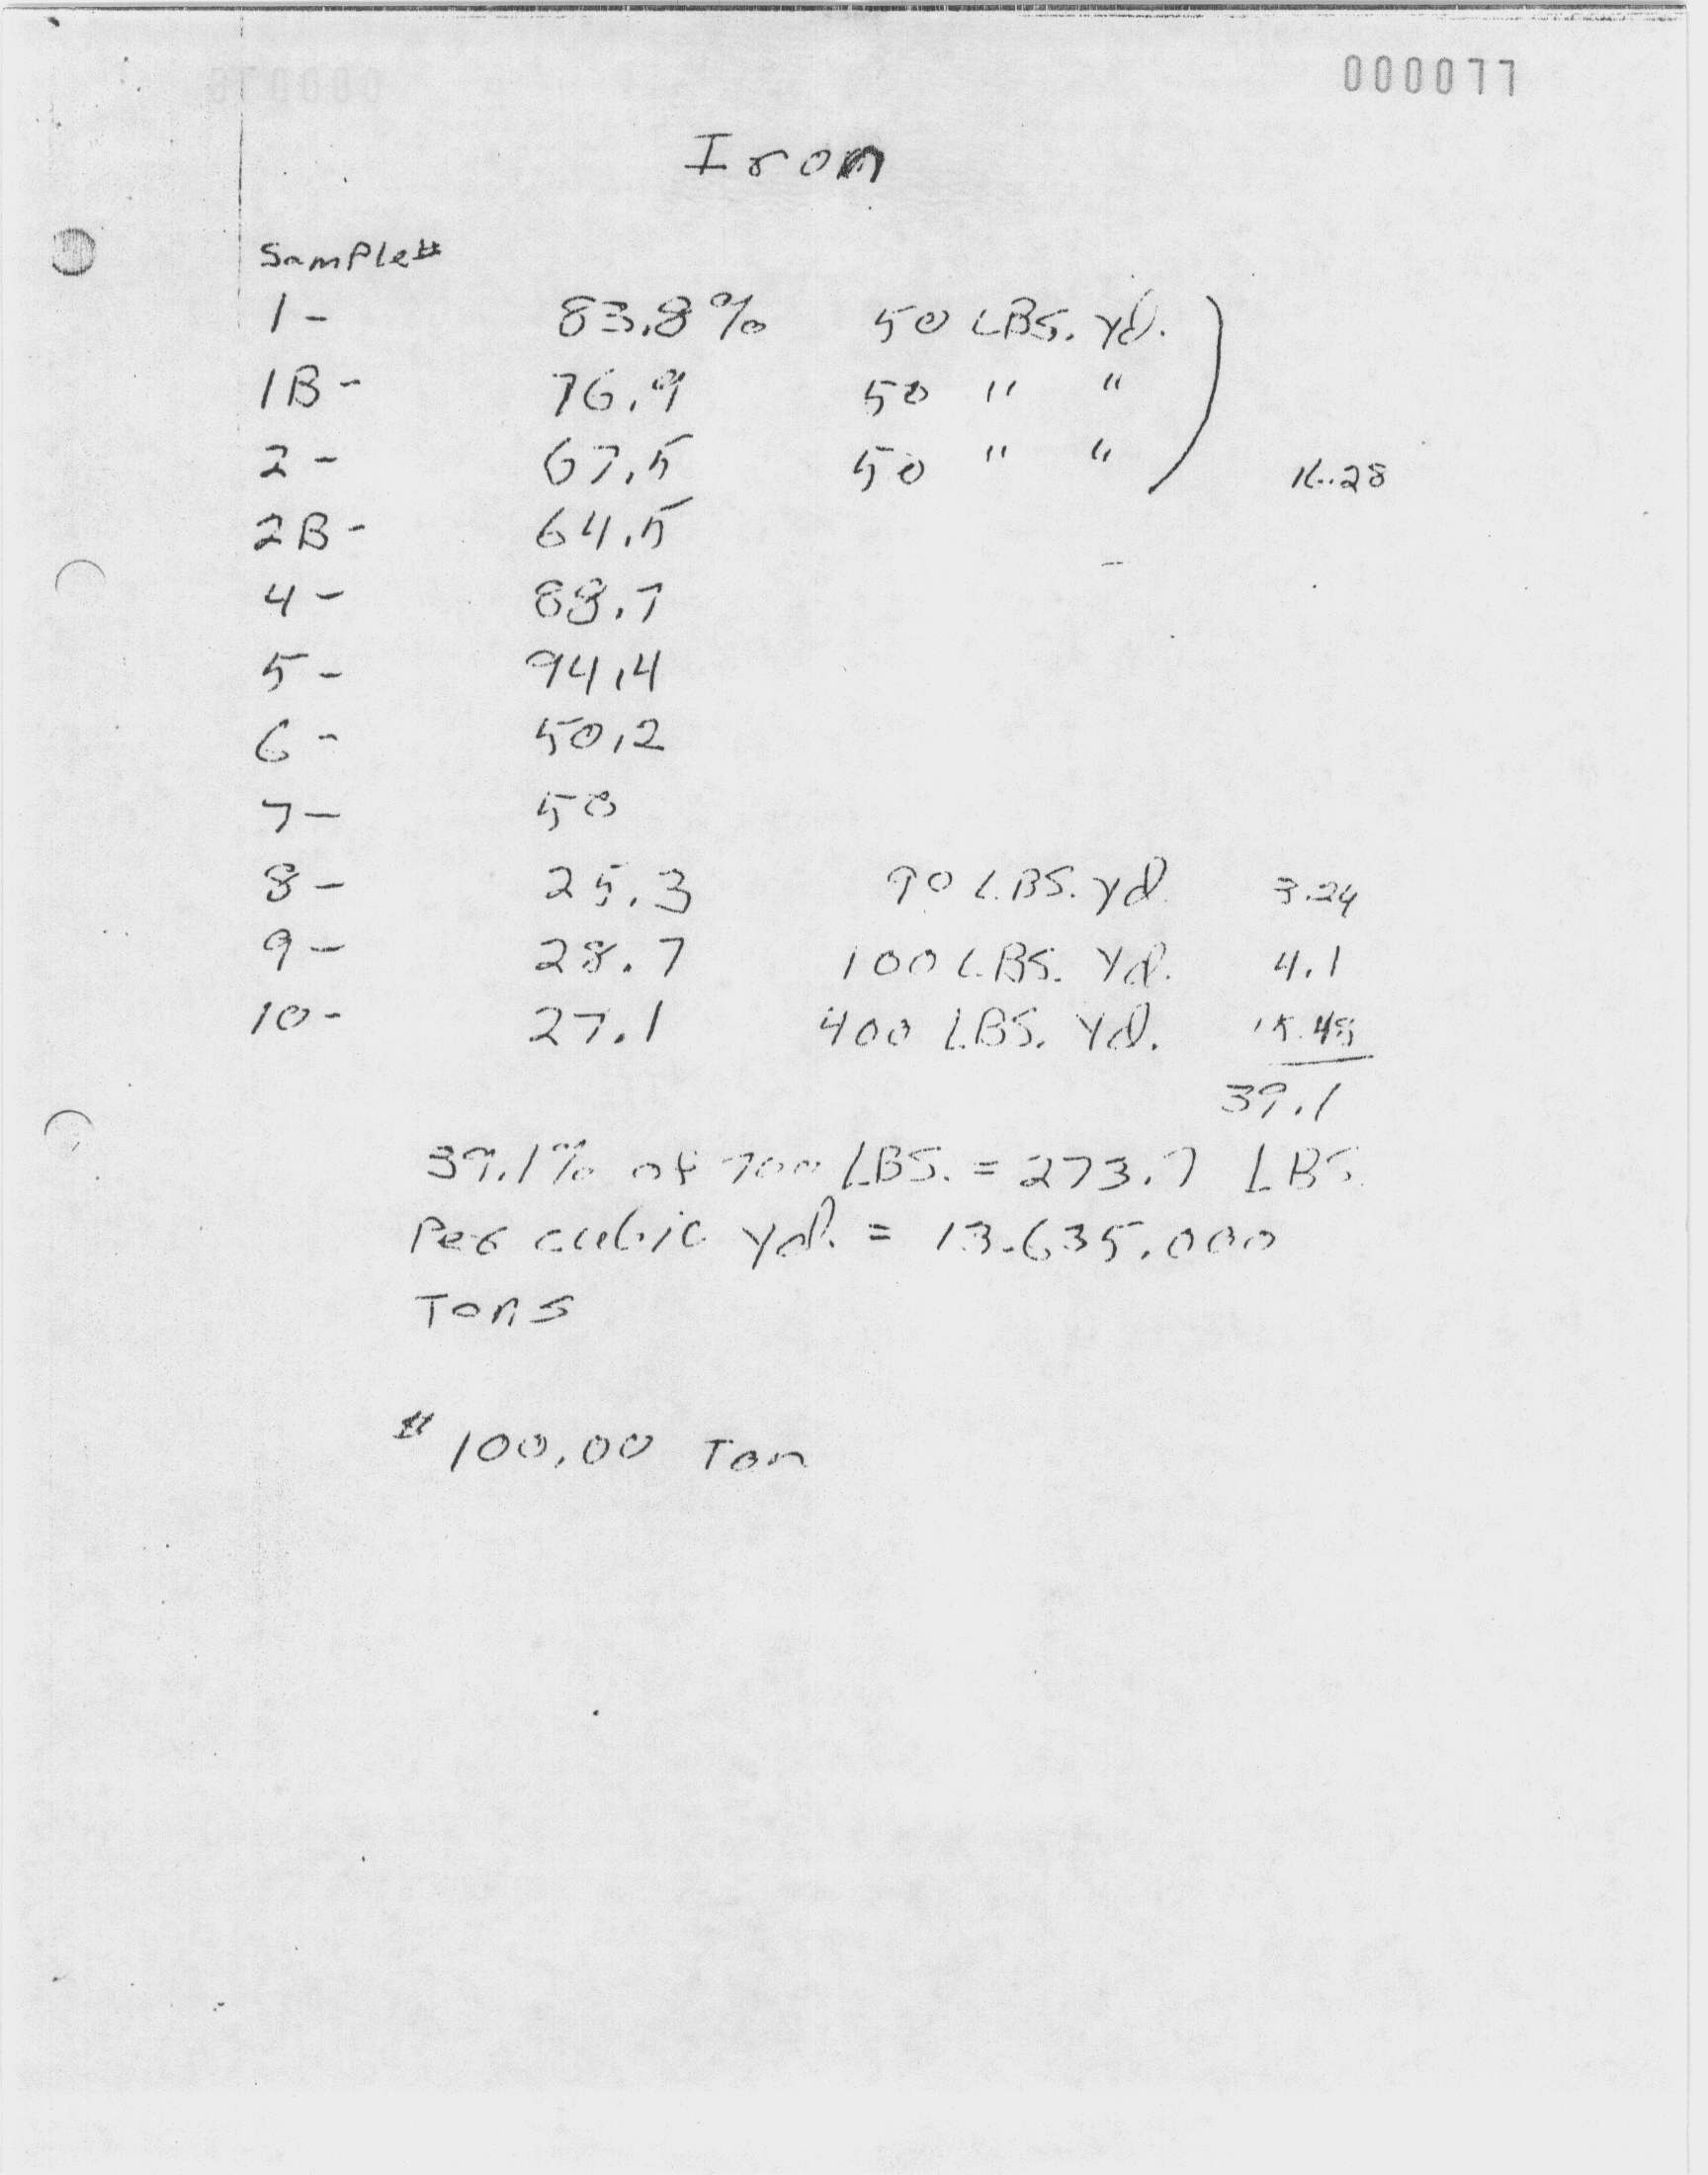 000077
Iron
Sample#
1 - 83.8% 50 LBS. yd.
1B - 76.9 50 " "
2 - 67.5 50 " " 16.28
2B - 64.5
4 - 88.7
5 - 94.4
6 - 50.2
7 - 50
8 - 25.3 90 LBS. yd. 3.24
9 - 28.7 100 LBS. Yd. 4.1
10 - 27.1 400 LBS. Yd. 15.48
39.1
39.1% of 700 LBS. = 273.7 LBS.
Per cubic yd. = 13.635.000
Tons
# 100.00 Ton